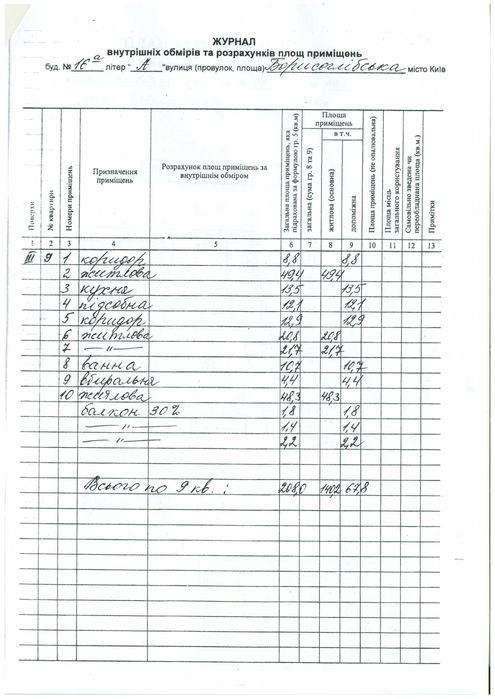 ЖУРНАЛ
внутрішніх обмірів та розрахунків площ приміщень
буд. № 16а літер " А "вулиця (провулок, площа) Борисоглібська місто Київ
Поверхи
№ квартири
Номери приміщень
Призначення приміщень
Розрахунок площ приміщень за внутрішнім обміром
Загальна площа приміщень, яка підрахована за формулою гр. 5 (кв.м)
Площа приміщень
в т.ч.
загальна (сума гр. 8 та 9)
житлова (основна)
допоміжна
Площа приміщень (не опалювальна)
Площа місць загального користування
Самовільно зведена чи переобладнана площа (кв.м.)
Примітки
1 2 3 4 5 6 7 8 9 10 11 12 13
III 9 1 коридор 8,8 8,8
2 житлова 49,4 49,4
3 кухня 13,5 13,5
4 підсобна 12,1 12,1
5 коридор 12,9 12,9
6 житлова 20,8 20,8
7 — " — 21,7 21,7
8 ванна 10,7 10,7
9 вбиральня 4,4 4,4
10 житлова 48,3 48,3
балкон 30% 1,8 1,8
— " — 1,4 1,4
— " — 2,2 2,2
Всього по 9 кв. : 208,0 140,2 67,8